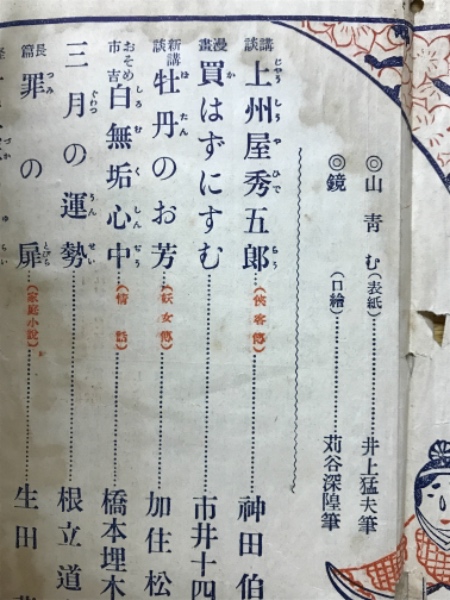 ◎山青む(表紙)……井上猛夫筆
◎鏡(口繪)……苅谷深隍筆
講談 上州屋秀五郎……(俠客傳)……神田伯
漫畫 買はずにすむ……市井十四
新講談 牡丹のお芳……(妖女傳)……加住松
おそめ市吉 白無垢心中……(情話)……橋本埋木
三月の運勢……根立道
長篇 罪の扉……(家庭小說)……生田